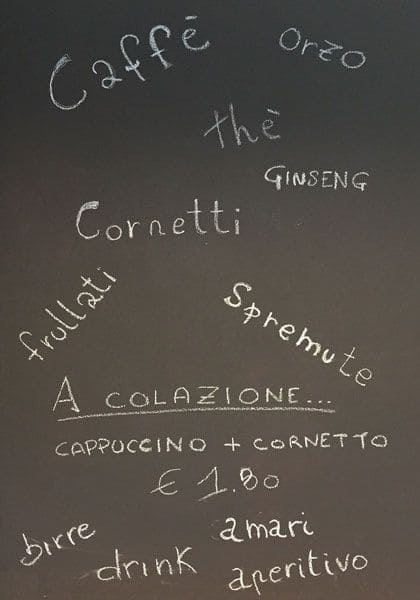 Caffè
orzo
thè
GINSENG
Cornetti
frullati
Spremute
A COLAZIONE...
CAPPUCCINO + CORNETTO
€ 1.80
birre
amari
drink
aperitivo